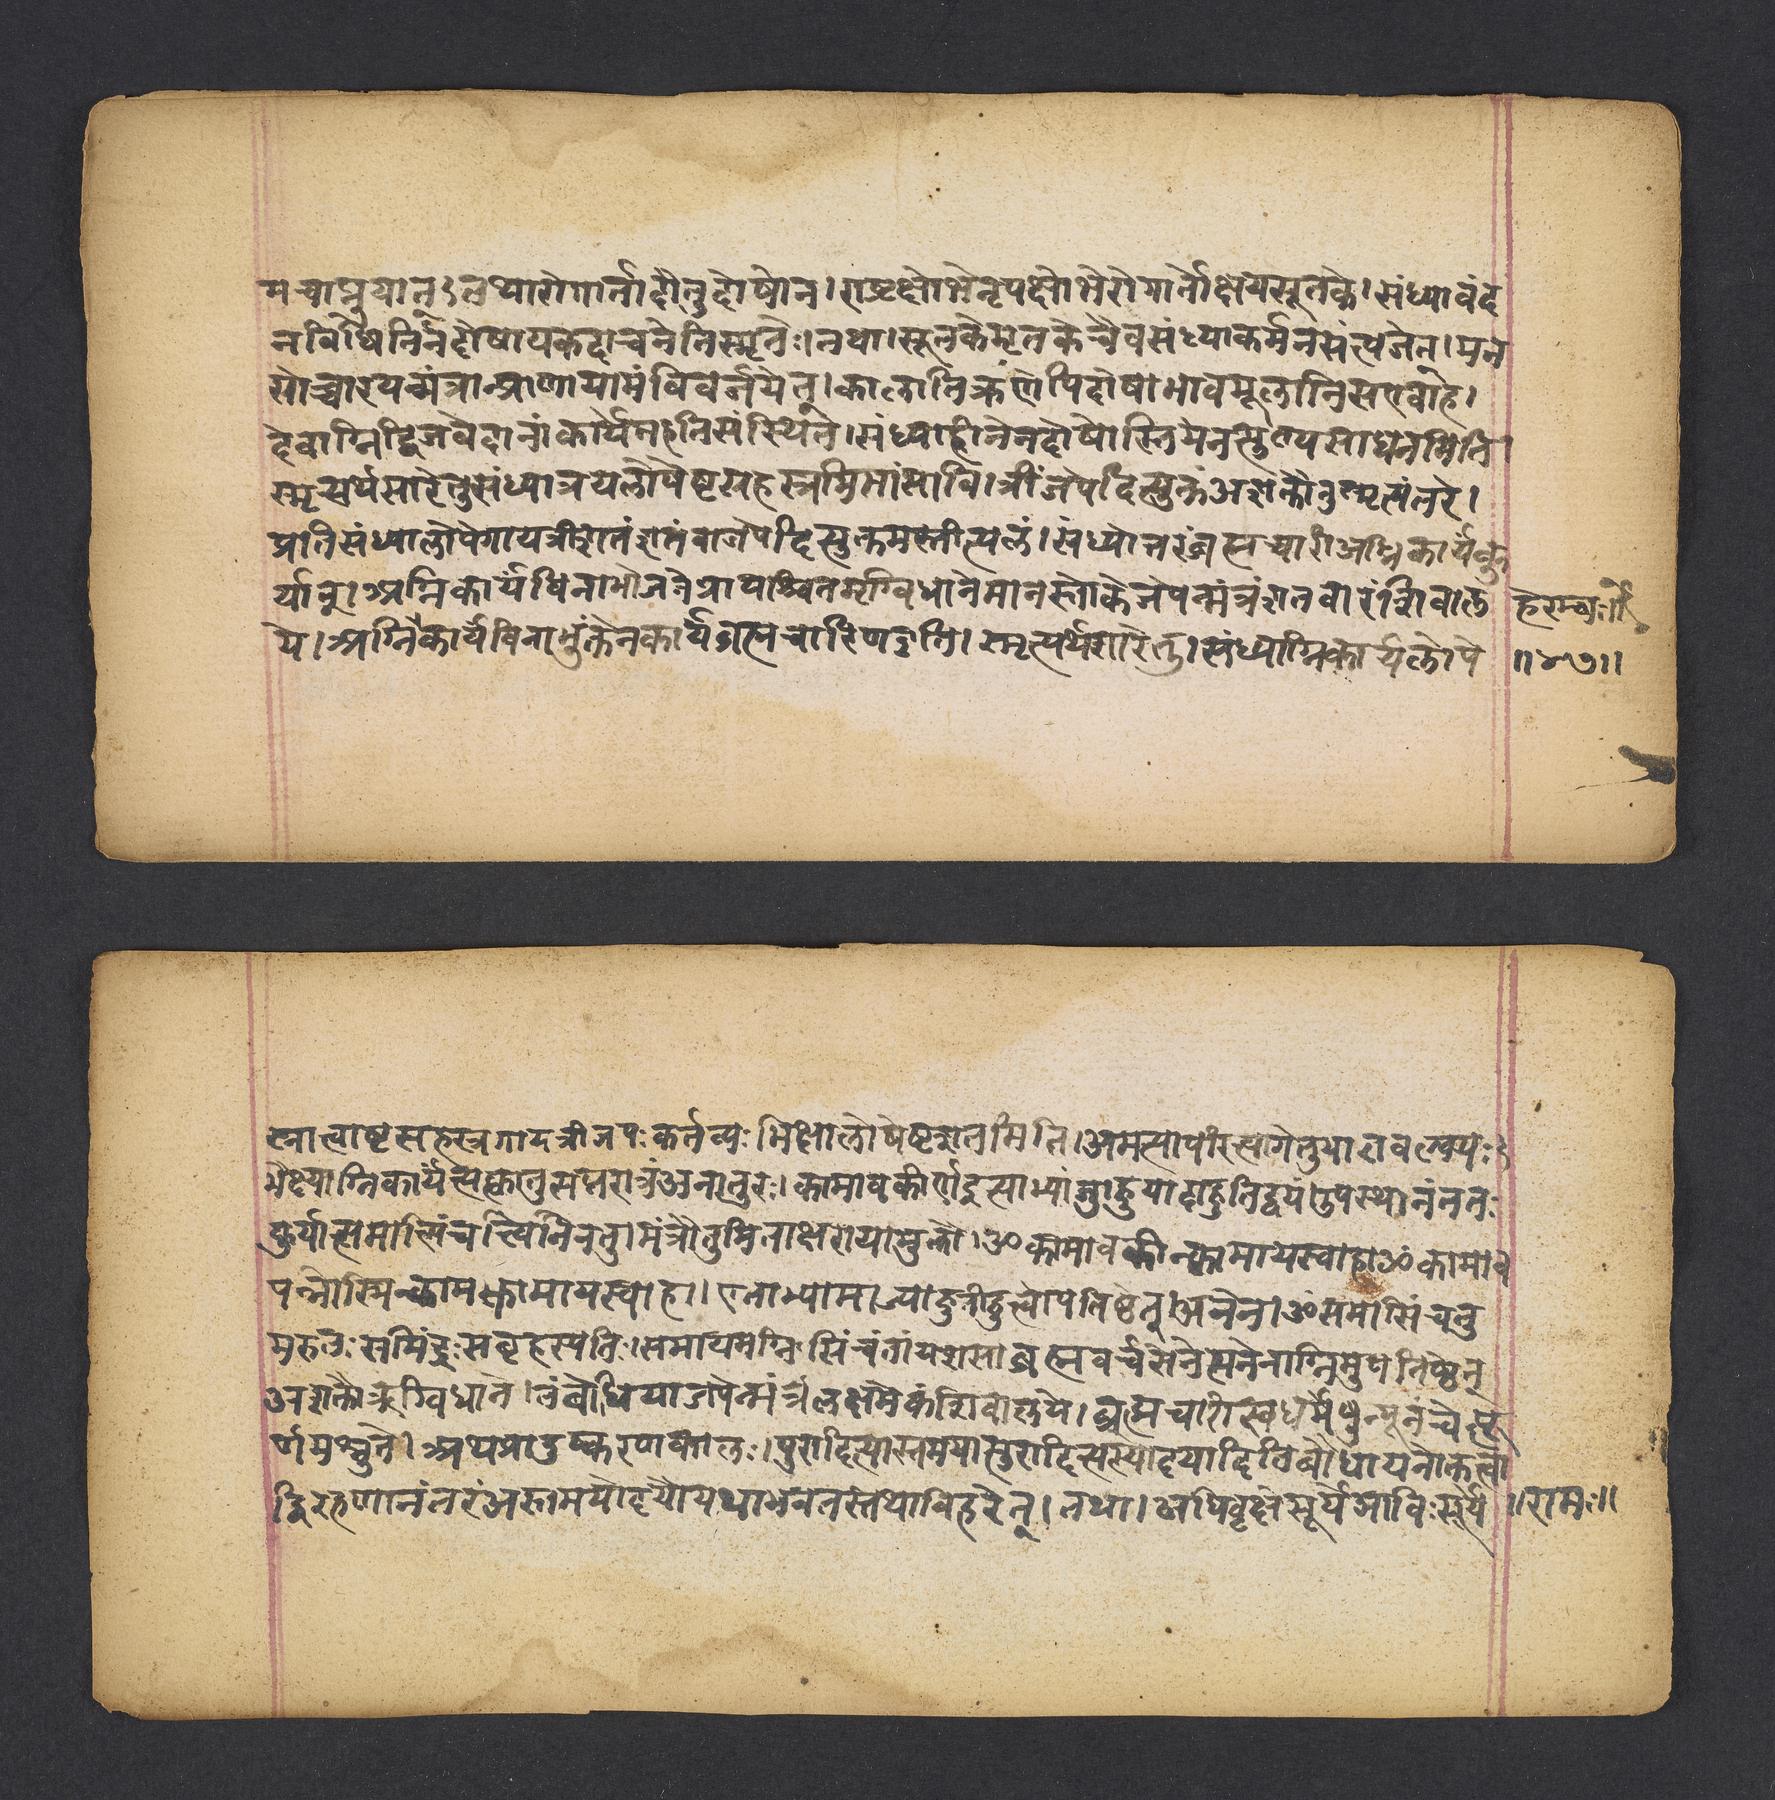 मचाप्नुयात् ऽ तथारोगार्तादौतुदोषोन। राष्ट्रक्षोभेनृपक्षोभेरोगार्तोक्षयसूतके। संध्यावंद
नविधिर्निर्नदोषायकदाचनेतिस्मृतेः। तथा। सूतकेमृतकेचैवसंध्याकर्मनसंत्यजेत्। मन
सोच्चारयन्मंत्रान्प्राणायामंविवर्जयेत्। कालातिक्रणेपिदोषाभावमूलानिसएवाह।
देवाग्निद्विजवेदानांकार्येमहतिसंस्थिते। संध्याहीनेनदोषोस्तियेनसत्पुण्यसाधनमिति
स्मृत्यर्थसारेतुसंध्यात्रयलोपेष्टसहस्त्रमिमां त्रींजपेदित्युक्तंअशक्तौतुस्मृत्यंतरे।
प्रतिसंध्यालोपेगायत्रीशतंशतंवाजपेदित्युक्तमस्तीत्यलं। संध्योत्तरंब्रह्मचारीअग्निकार्यंकु
र्यात्। अग्निकार्यविनाभोजनेप्रायश्चित्तमृग्विधानेमानस्तोकेजपेन्मंत्रंशतवारंशिवाल
ये। अग्निकार्यंविनाभुक्तेनकार्यंब्रह्मचारिणइति। स्मृत्यर्थसारेतु। संध्याग्निकार्यलोपे
॥४७॥
स्नात्वाष्टसहस्त्रगायत्रीजपःकर्तव्यः भिक्षालोपेष्टशतमिति। अमत्यापरित्यागेतुयाज्ञवल्क्यः
भैक्ष्याग्निकार्येत्यक्त्वातुसप्तरात्रंअनातुरः। कामावकीर्णइत्याभ्यांजुहुयादाहुतिद्वयं। उपस्थानंततः
कुर्यात्समासिंचत्त्वितिनेनतु। मंत्रौतुमिताक्षरायामुक्तौ। ॐकामावकीन्कामायस्वाहाॐकामाव
पन्नोस्मिन्कामकामायस्वाहा॥ एताभ्यामाज्याहुतीहुत्वोपतिष्ठेत्। अनेन। ॐसमासिंचंतु
मरुतःसमिंद्रःसबृहस्पतिः। समायमग्निःसिंचंतांयशसाब्रह्मवर्चसेनेत्यनेनाग्निमुपतिष्ठेत्
अशक्तौऋग्विधाने। तंवोधियाजपेन्मंत्रंलक्षमेकंशिवालये। ब्रह्मचारीस्वधर्मेषुन्यूनंचेत्पू
र्णमश्नुते। अथप्रादुष्करणकालः। पुरादित्यास्तमयात्पुरादित्यस्योदयादितिबौधायनोक्तत्वा
द्विहरणानंतरंअस्तमयोदयौयथाभवतस्तथाविहरेत्। तथा। क्वापिवृक्षेसूर्यआविःसूर्य
॥रामः॥